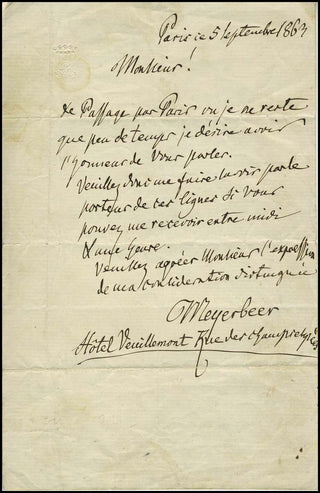 Paris ce 5 Septembre 1863
Monsieur!
de Passage par Paris ou je ne reste
que peu de temps je désire avoir
l'honneur de Vous parler.
Veuillez donc me faire savoir par le
porteur de ces lignes si vous
pouvez me recevoir entre midi
& une heure.
Veuillez agréer Monsieur l'expression
de ma considération distinguée
Meyerbeer
Hôtel Veuillemont rue des champs elysées